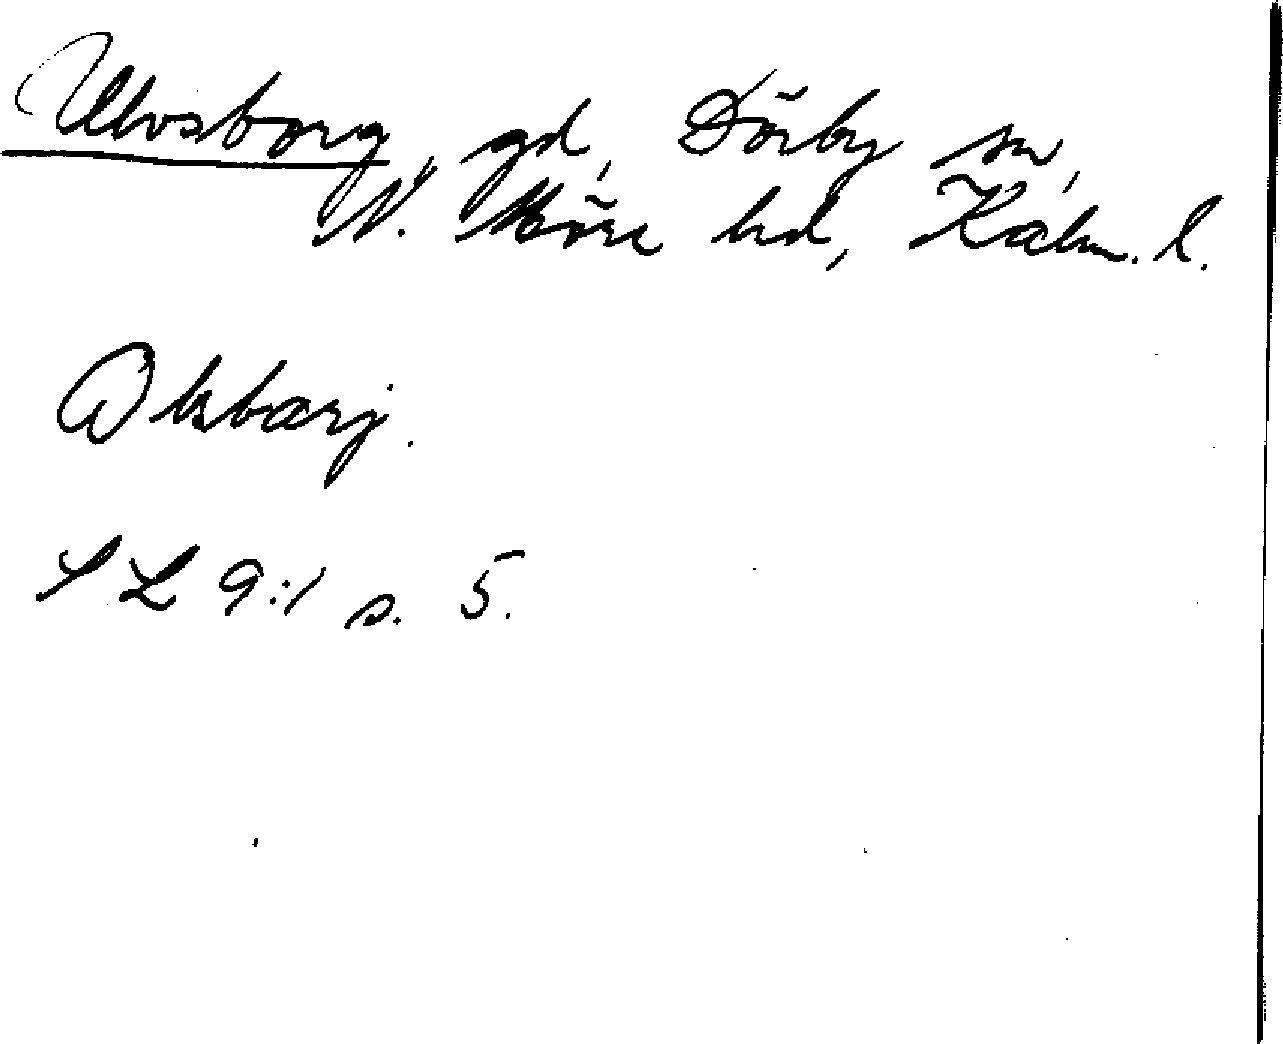 Ulvsborg, gd, Dörby sn,
N. Möre hd, Kalm. l.
Olsbärj.
SL 9:1 s. 5.